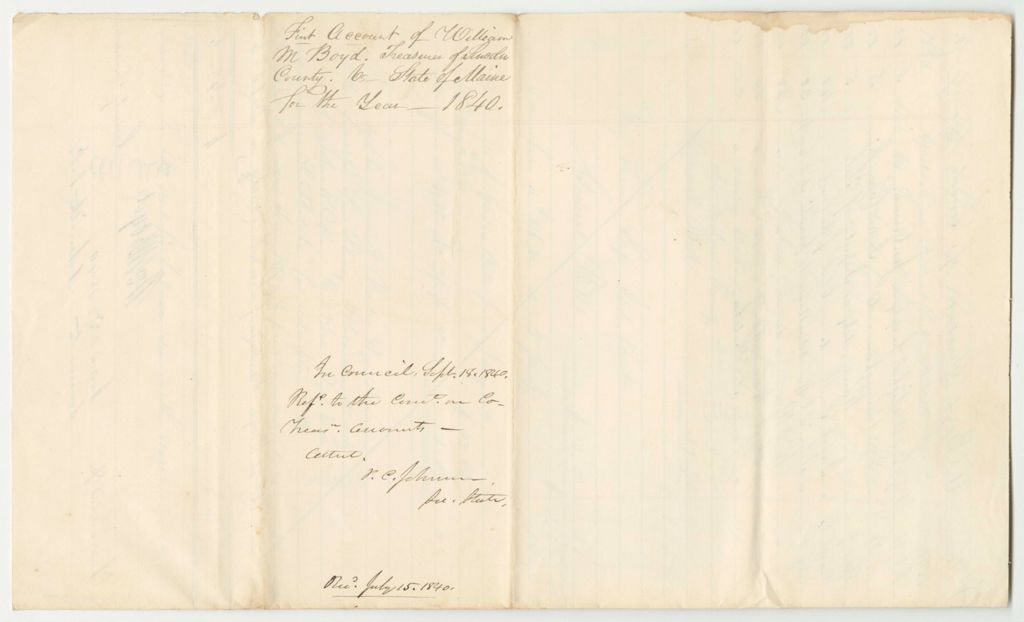 First Account of William
M Boyd. Treasurer of Lincoln
County. Vs State of Maine
for the Year — 1840.
In Council, Sept. 18. 1840.
Refd. to the Comee. on Co-
Treasr. Accounts —
Attest.
P. C. Johnson,
Sec. State.
Recd. July 15. 1840.